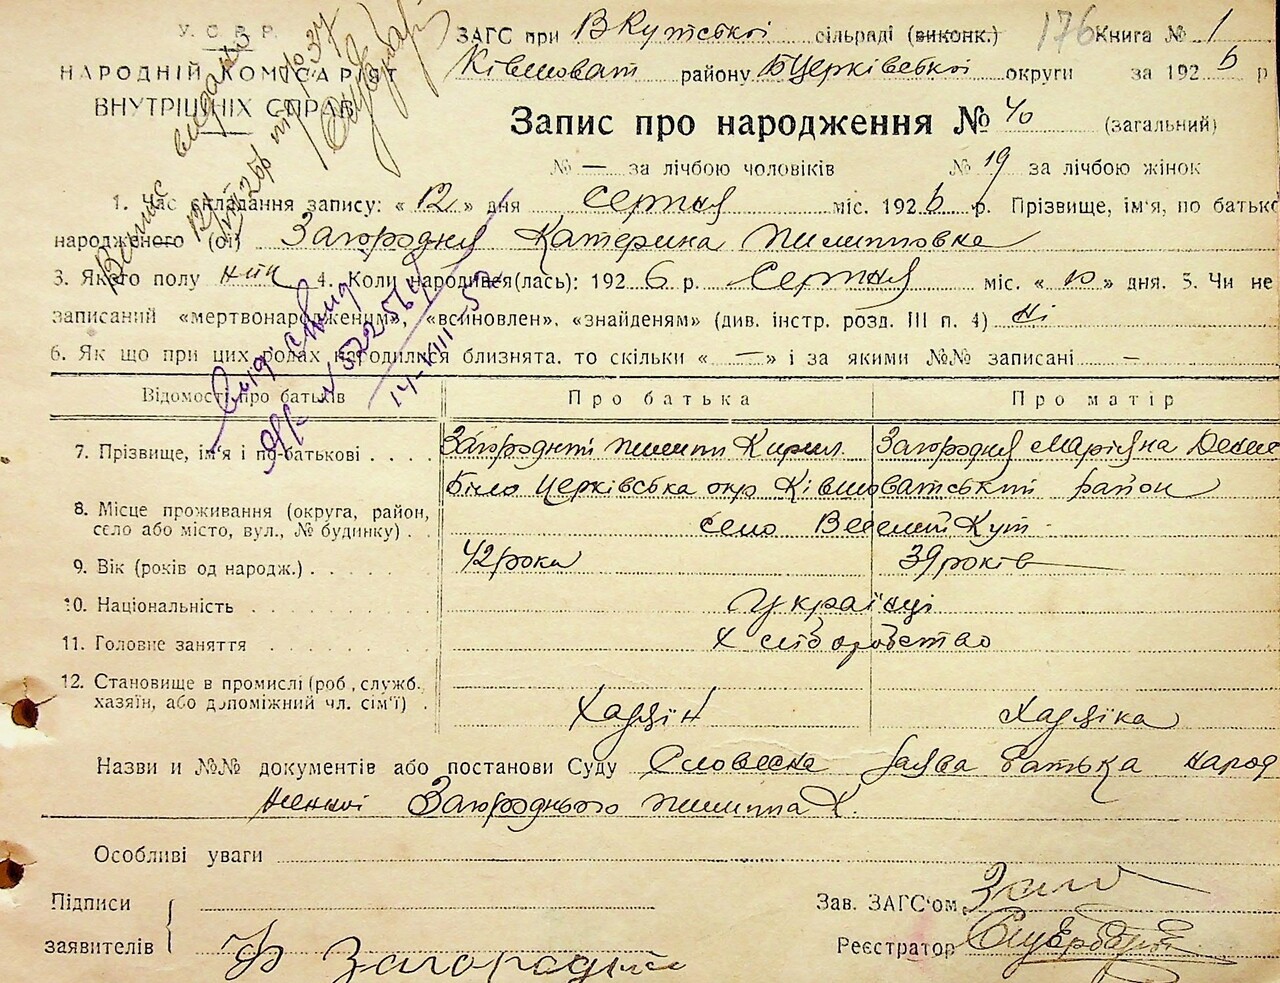 У. С. Р. Р.
НАРОДНІЙ КОМІСАРІЯТ
ВНУТРІШНІХ СПРАВ
ЗАГС при В Кутській сільраді (виконк.) 176 Книга № 1
Ківшоват району БЦерківської округи за 1926 р
Запис про народження № 40 (загальний)
№ — за лічбою чоловіків № 19 за лічбою жінок
1. Час складання запису: « 12 » дня серпня міс. 1926 р. Прізвище, ім'я, по батько
народженого (ої) Загородня Катерина Пилиповна
3. Якого полу жін 4. Коли народився(лась): 1926 р. Серпня міс. « 10 » дня. 5. Чи не
записаний «мертвонародженим», «всиновлен», «знайденям» (див. інстр. розд. III п. 4) ні
6. Як що при цих родах народилися близнята, то скільки « — » і за якими №№ записані —
Відомості про батьків Про батька Про матір
7. Прізвище, ім'я і по-батькові Загородній Пилип Кирил. Загородня Маріяна
8. Місце проживання (округа, район, село або місто, вул., № будинку) Біло Церківська окр Ківшоватський район
село Веселий Кут
9. Вік (років од народж.) 42 роки 39 років
10. Національність Українці
11. Головне заняття Хліборобство
12. Становище в промислі (роб., служб., хазяїн, або допоміжний чл. сім'ї) Хазяїн Хазяїка
Назви и №№ документів або постанови Суду Словесна заява батька народ
женної Загороднього Пилипа К.
Особливі уваги
Підписи
заявителів Загородній
Зав. ЗАГС'ом
Реєстратор
№ 522564
14-VIII-52